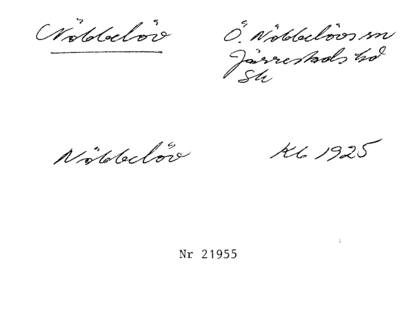 Nöbbelöv
Ö. Nöbbelövs sn
Järrestads hd
Sk
Nöbbelöv
Kb 1925
Nr 21955